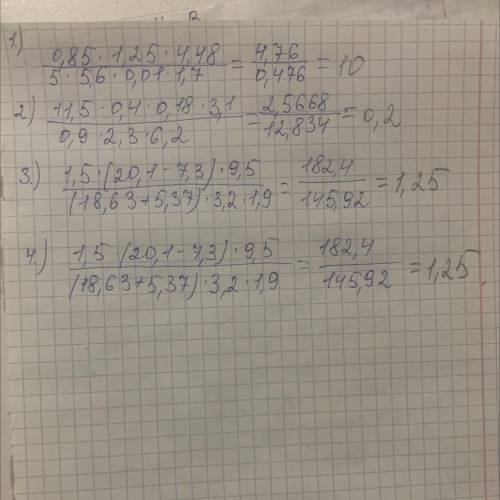 1.) 0,85 · 1,25 · 4,48 / 5 · 5,6 · 0,01 · 1,7 = 4,76 / 0,476 = 10
2) 11,5 · 0,4 · 0,18 · 3,1 / 0,9 · 2,3 · 6,2 = 2,5668 / 12,834 = 0,2
3.) 1,5 · (20,1 - 7,3) · 9,5 / (18,63 + 5,37) · 3,2 · 1,9 = 182,4 / 145,92 = 1,25
4.) 1,5 · (20,1 - 7,3) · 9,5 / (18,63 + 5,37) · 3,2 · 1,9 = 182,4 / 145,92 = 1,25